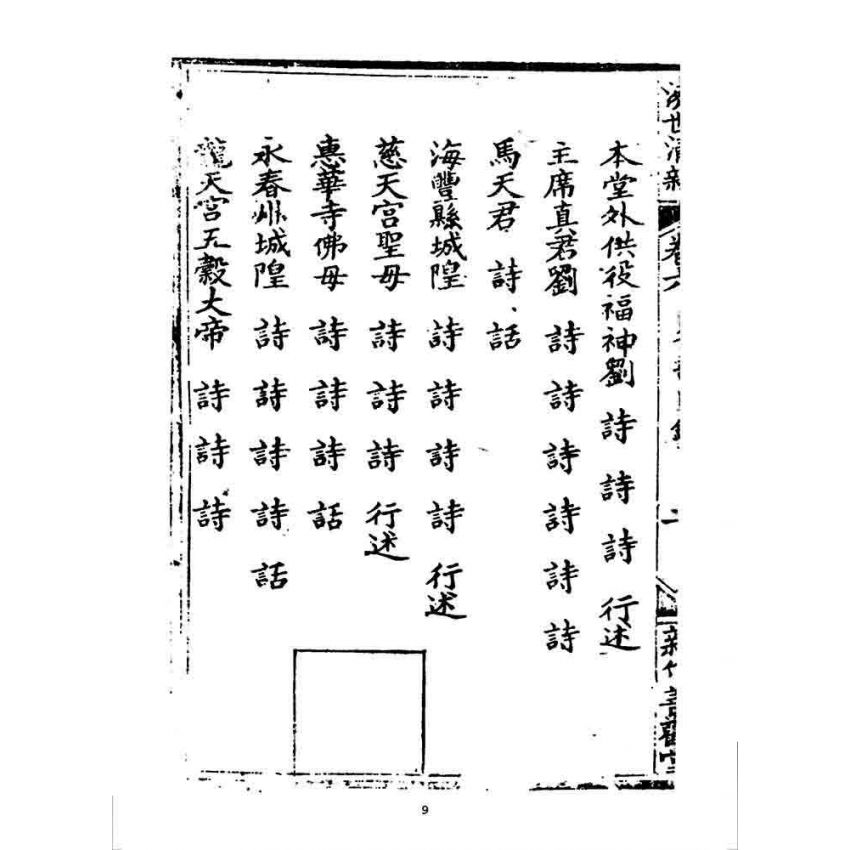 本堂外供役福神劉 詩 詩 詩 行述
主席真君劉 詩 詩 詩 詩 詩 詩
馬天君 詩 話
海豐縣城隍 詩 詩 詩 詩 行述
慈天宮聖母 詩 詩 詩 行述
惠華寺佛母 詩 詩 詩 話
永春州城隍 詩 詩 詩 詩 話
龍天宮五穀大帝 詩 詩 詩
濟世清新
卷六
二
9